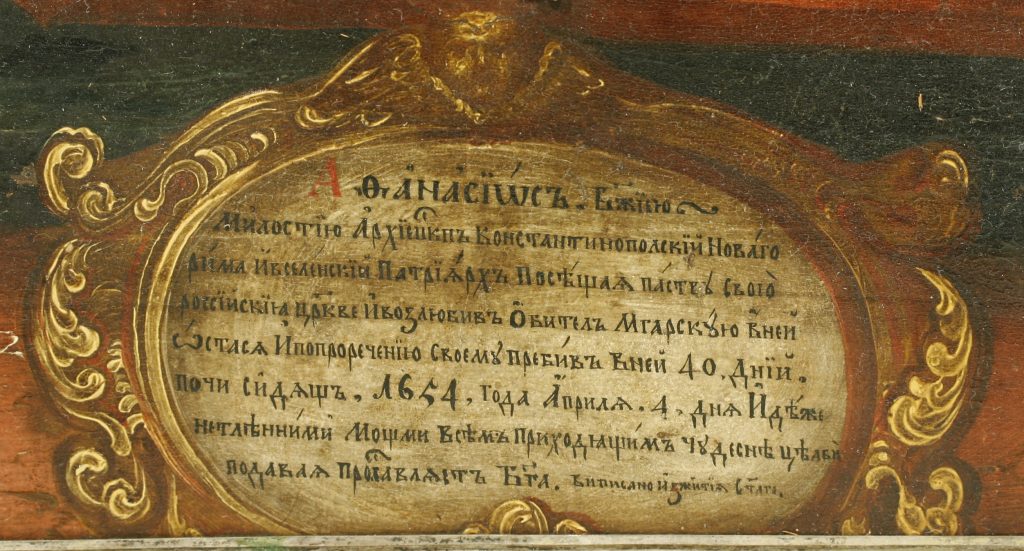 Аѳанасїѡсъ. Бжїею
Милостїю Архїишкпъ Константинополскїй Новаго
рима Ивселенскїй Патрїярхъ Посѣщая паству Свою
россїйскїя цркве Ивозлюбивъ Обителъ Мгарскую Вней
Ѡстася Ипопроречению Своему пребивъ Вней 40. Днїй.
почи Сидящъ. 1654. Года Априля. 4. дня Идѣже
нетлѣнними Мощми Всѣмъ приходящимъ чудеснѣ цѣлби
подавая Прославляетъ Бга. Виписано Изжитїя Стаго.